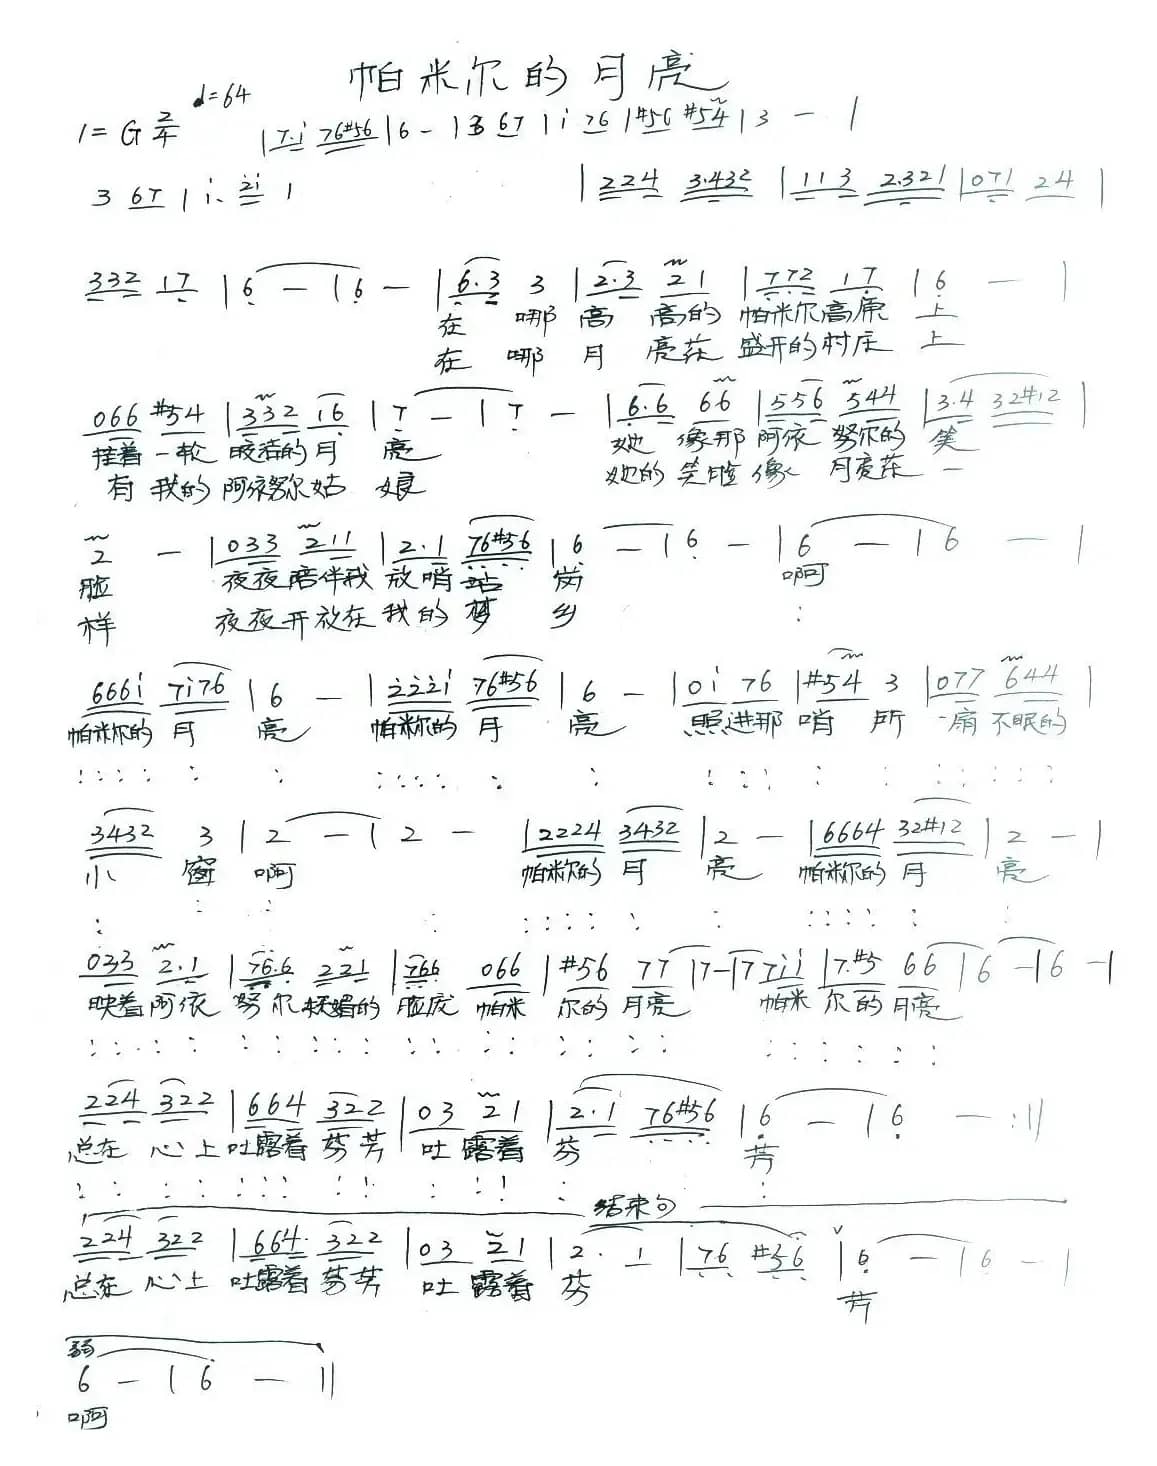 帕米尔的月亮
♩=64
1=G 2/4 |7·i 76#56|6 - |3 67|i 76|#56 #54|3 - |
3 67|i· 2i| |224 3·432|113 2·321|071 24|
332 17|6 - |6 - |6·3 3|2·3 21|772 17|6 - |
在 哪 高 高的 帕米尔高原 上
在 哪 月 亮花 盛开的村庄 上
066 #54|332 16|7 - |7 - |6·6 66|556 544|3·4 32#12|
挂着一轮 皎洁的月 亮 她 像那 阿依 努尔的 笑
有 我的 阿依努尔姑 娘 她的 笑脸 像 月亮花 一
2 - |033 211|2·1 76#56|6 - |6 - |6 - |6 - |
脸 夜夜陪伴我 放哨 站 岗 啊
样 夜夜开放在 我的 梦 乡 :
666i 7i76|6 - |222i 76#56|6 - |0i 76|#54 3|077 644|
帕米尔的 月 亮 帕米尔的 月 亮 照进那 哨 所 一扇 不眠的
3432 3|2 - |2 - |2224 3432|2 - |6664 32#12|2 - |
小 窗 啊 帕米尔的 月 亮 帕米尔的 月 亮
033 2·1|76·6 221|766 066|#56 77|7-|77ii|7·#5 66|6 -|6 -|
映着 阿依 努尔 妩媚的 脸庞 帕米 尔的 月亮 帕米 尔的 月亮
224 322|664 322|03 21|2·1 76#56|6 - |6 - :||
总在 心上 吐露着 芬芳 吐 露着 芬 芳
结束句
224 322|664 322|03 21|2· 1|76 #56|6 - |6 - |
总在 心上 吐露着 芬芳 吐 露着 芬 芳
弱
6 - |6 - ||
啊